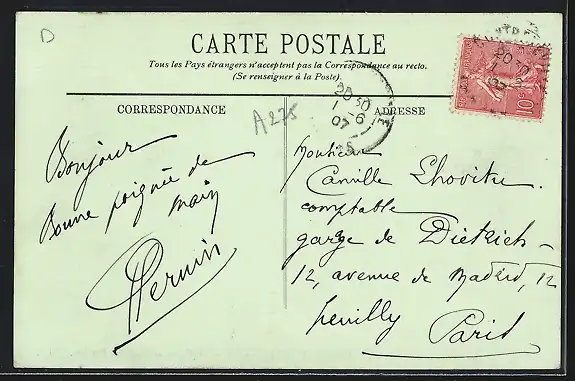 D
CARTE POSTALE
Tous les Pays étrangers n'acceptent pas la Correspondance au recto.
(Se renseigner à la Poste).
CORRESPONDANCE
ADRESSE
A275
20 30
1 - 6
07
10
Bonjour
Bonne poignée de
main
Monsieur
Camille
comptable
garage de Diétrich
12, avenue de Madrid, 12
Neuilly Paris